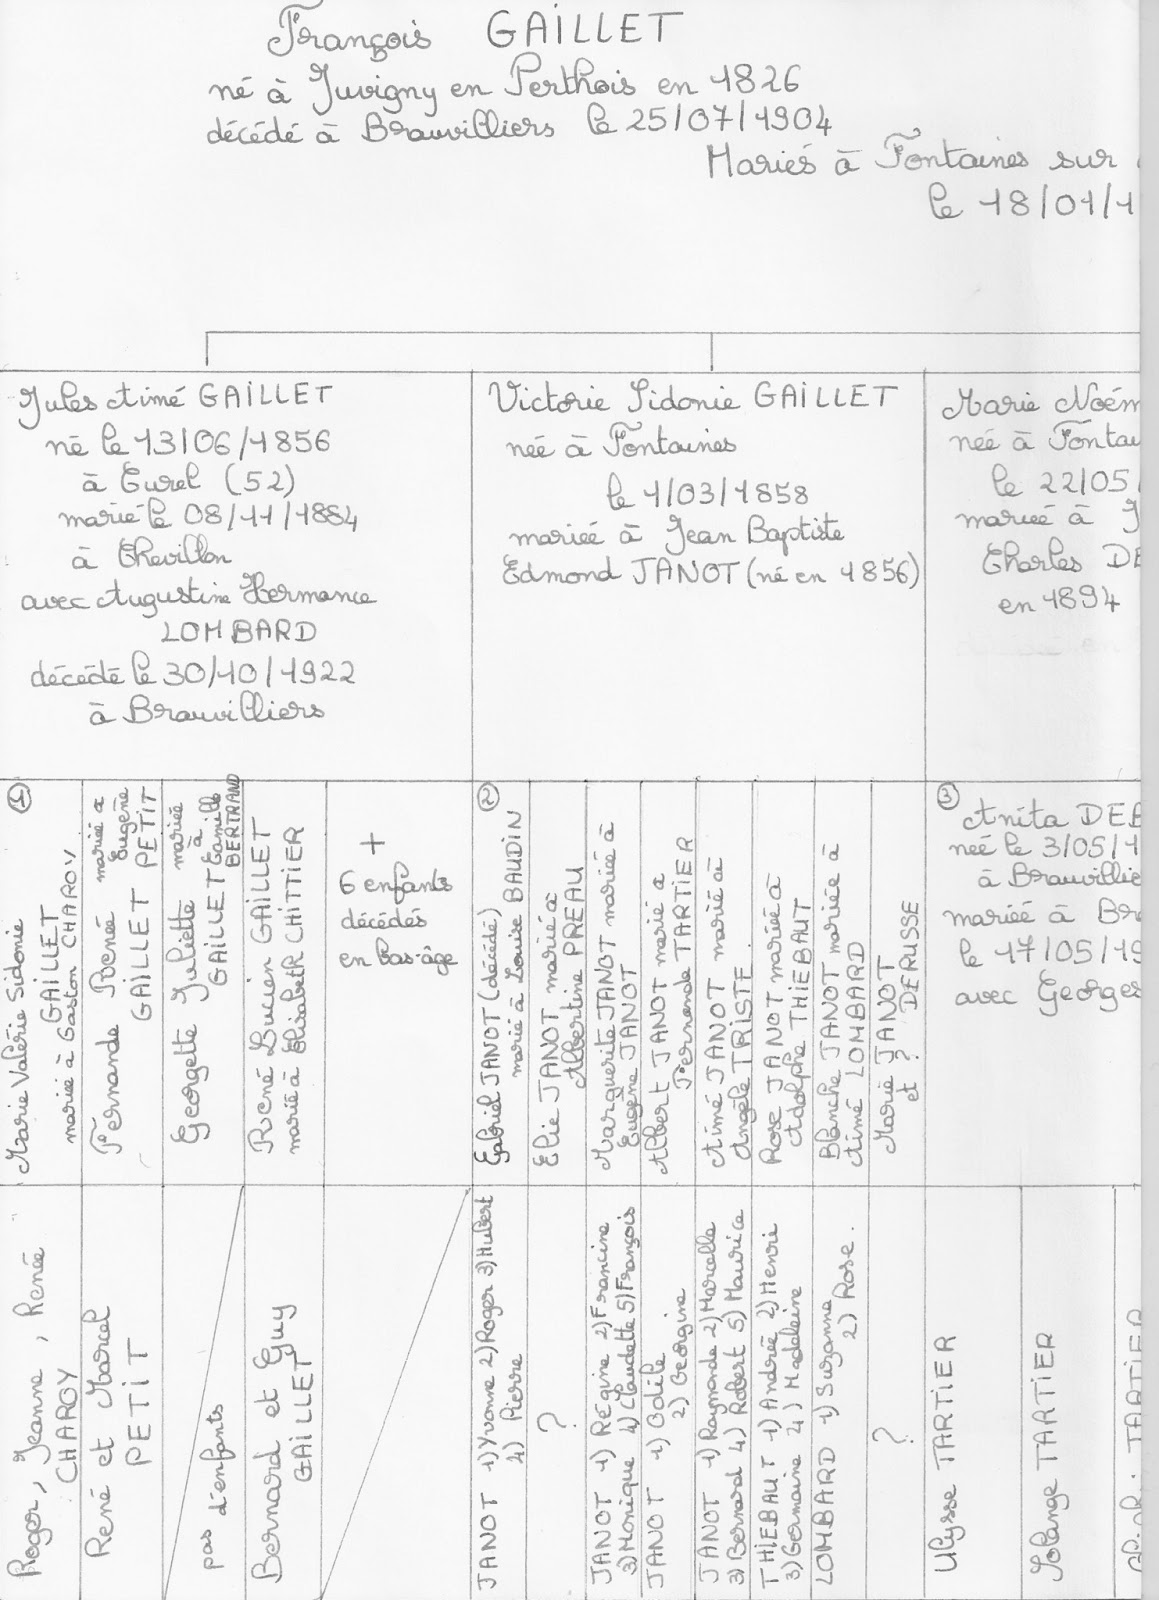 François GAILLET
né à Juvigny en Perthois en 1826
décédé à Brauvilliers le 25/07/1904
Mariés à Fontaines sur
le 18/01/1
Jules Aimé GAILLET
né le 13/06/1856
à Eurel (52)
marié le 08/11/1884
à Chevillon
avec Augustine Hermance
LOMBARD
décédé le 30/10/1922
à Brauvilliers
Victorie Sidonie GAILLET
née à Fontaines
le 1/03/1858
mariée à Jean Baptiste
Edmond JANOT (né en 1856)
Marie Noém
née à Fontai
le 22/05/
mariée à J
Charles DE
en 1894
1
Marie Valérie Sidonie
GAILLET
mariée à Gaston CHAROY
Fernande Renée
GAILLET
mariée à
Eugène
PETIT
Georgette Juliette
GAILLET
mariée
à
Camille
BERTRAND
René Lucien GAILLET
marié à Elisabeth CHITTIER
+
6 enfants
décédés
en bas-âge
2
Gabriel JANOT (décédé)
marié à Louise BAUDIN
Elie JANOT marié à
Albertine PREAU
Marguerite JANOT mariée à
Eugène JANOT
Albert JANOT marié à
Fernande TARTIER
Aimé JANOT marié à
Angèle TRISTE
Rose JANOT mariée à
Adolphe THIEBAUT
Blanche JANOT mariée à
Aimé LOMBARD
Marie JANOT
et ? DERUSSE
3
Anita DEB
née le 3/05/1
à Brauvillie
mariée à Br
le 17/05/19
avec Georges
Roger, Jeanne, Renée
CHAROY
René et Marcel
PETIT
pas d'enfants
Bernard et Guy
GAILLET
JANOT 1) Yvonne 2) Roger 3) Hubert
4) Pierre
?
JANOT 1) Régine 2) Francine
3) Monique 4) Claudette 5) François
JANOT 1) Odile
2) Georgine
JANOT 1) Raymonde 2) Marcelle
3) Bernard 4) Robert 5) Maurice
THIEBAUT 1) Andrée 2) Henri
3) Germaine 4) Madeleine
LOMBARD 1) Suzanne
2) Rose.
?
Ulysse TARTIER
Solange TARTIER
TARTIER